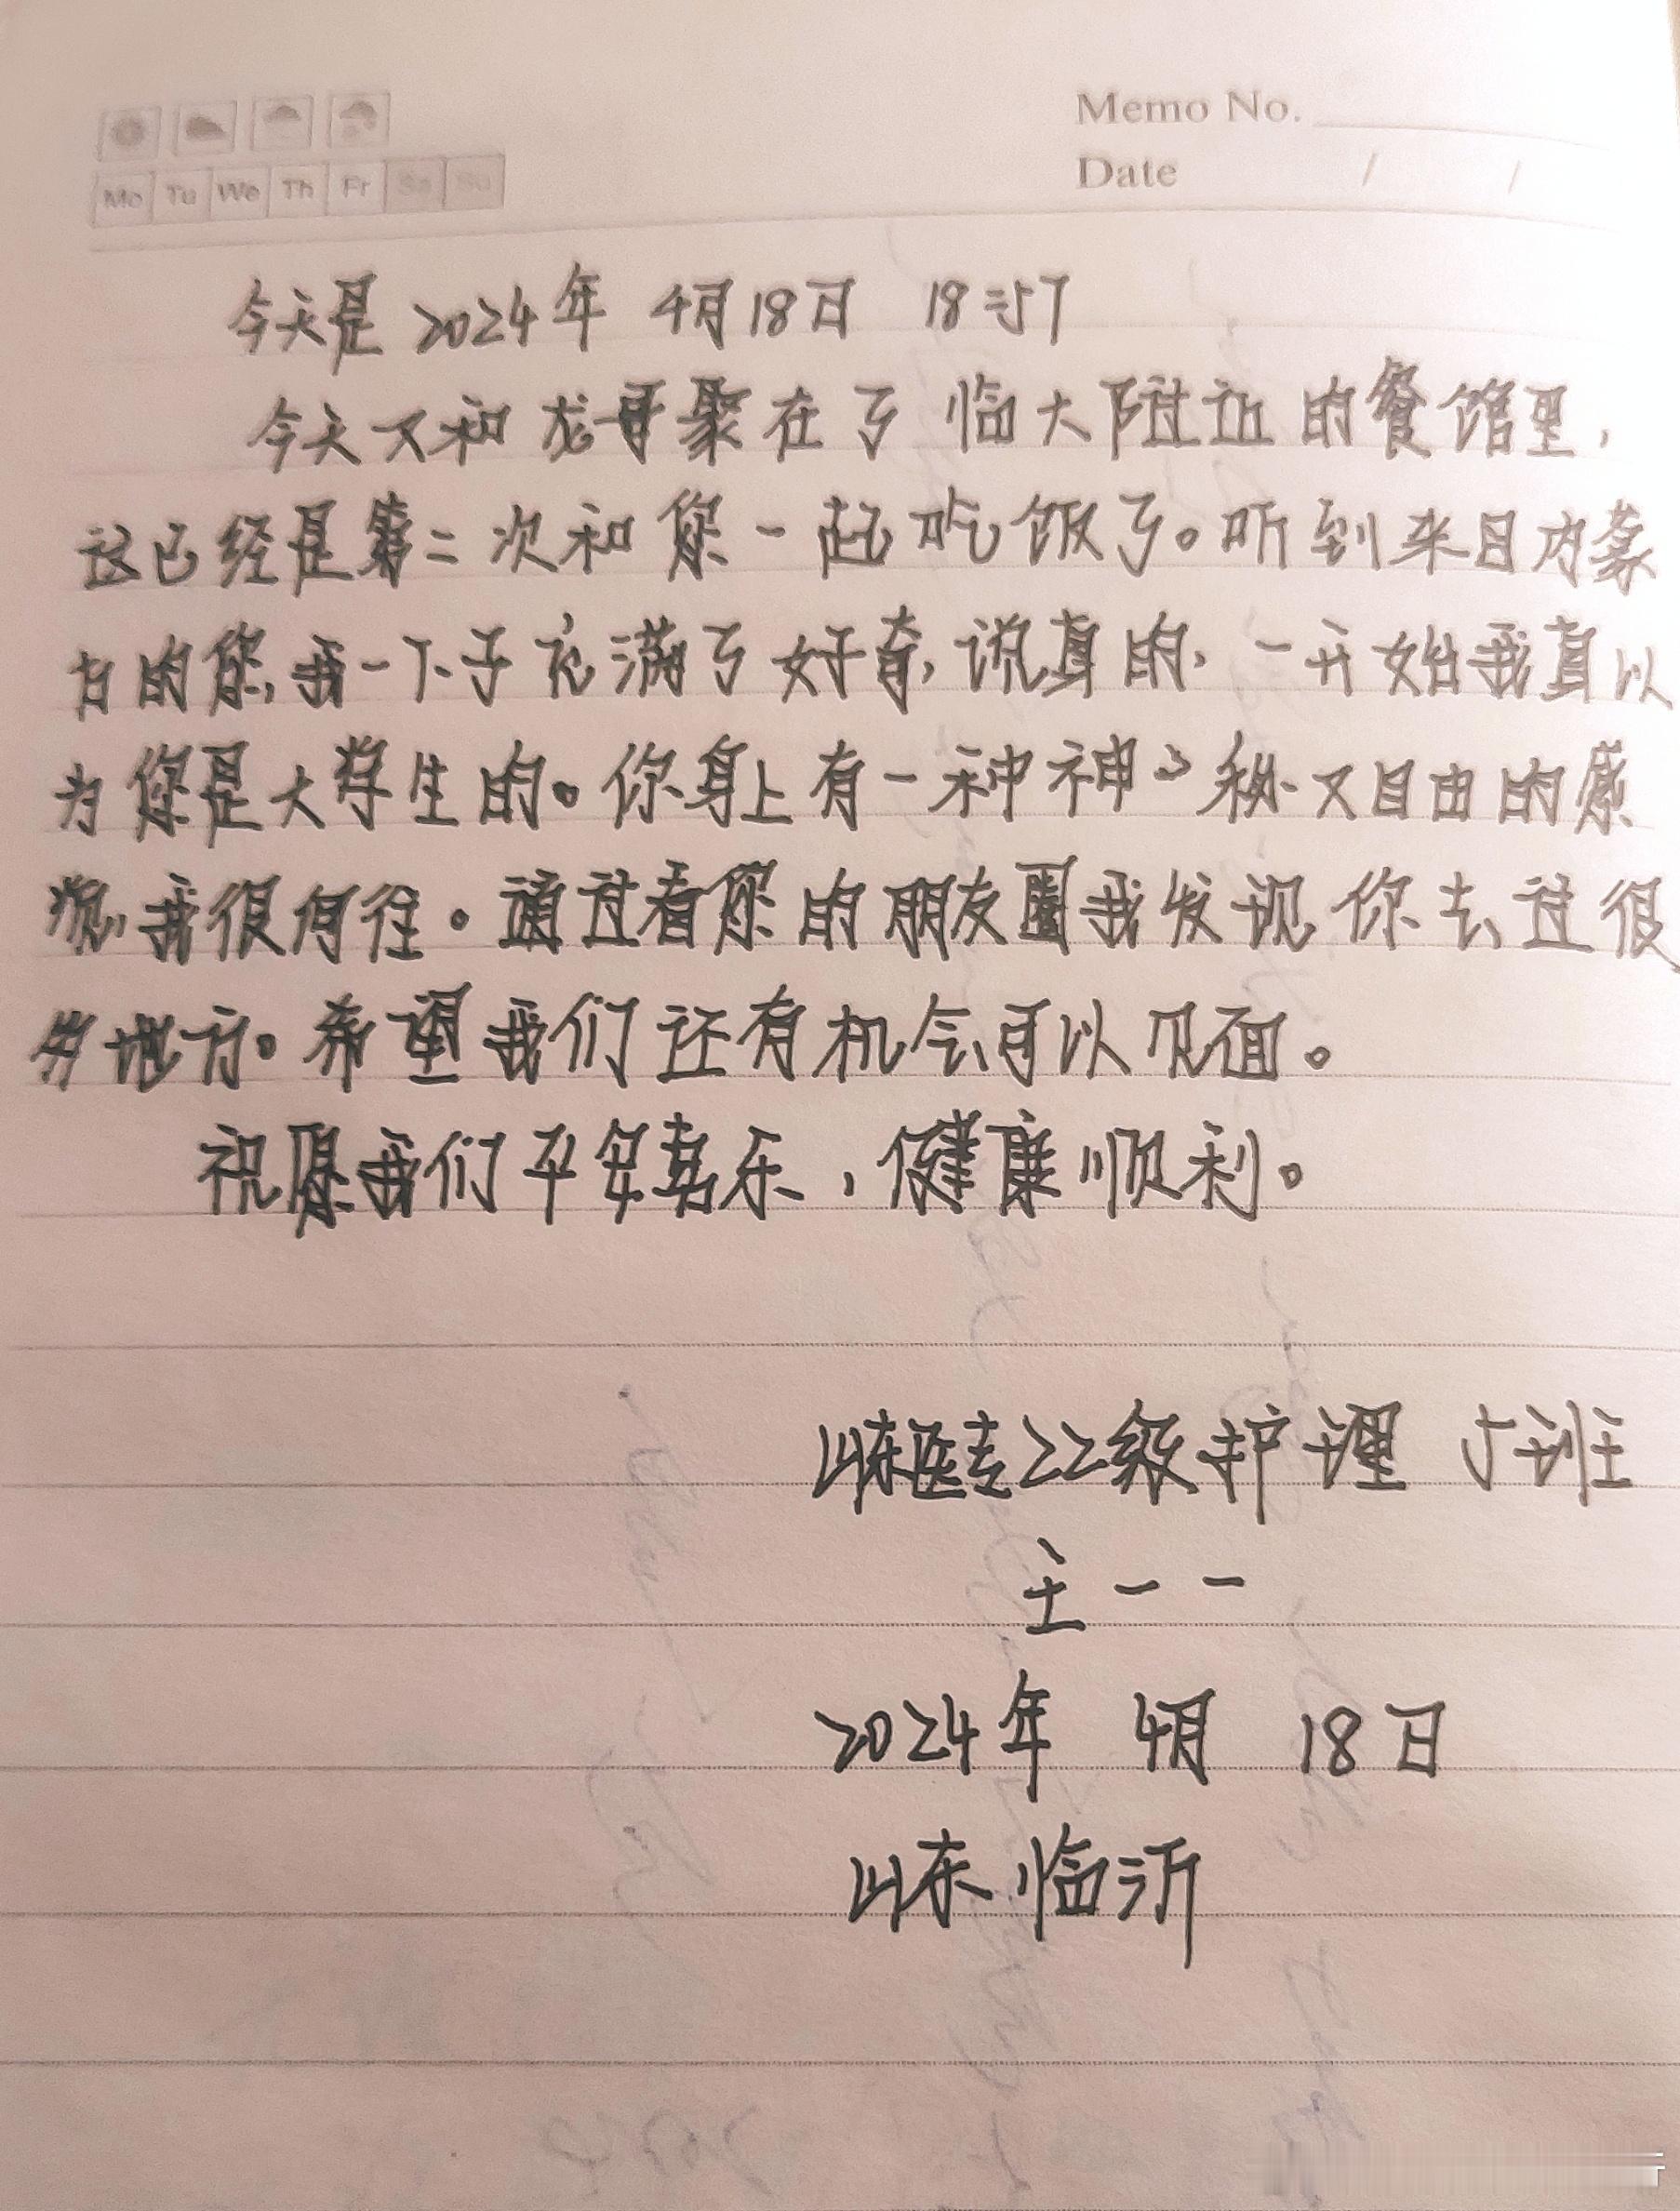 Memo No.
Mo Tu We Th Fr Sa Su
Date / /
今天是2024年 4月18日 18:57
今天又和龙哥聚在了临大附近的餐馆里，
这已经是第二次和您一起吃饭了。听到来自内蒙
古的您，我一下子充满了好奇，说真的，一开始我真以
为您是大学生的。你身上有一种神秘又自由的感
觉，我很向往。通过看您的朋友圈我发现你去过很
多地方。希望我们还有机会可以见面。
祝愿我们平安喜乐，健康顺利。
山东医专22级护理5班
王一一
2024年 4月 18日
山东临沂